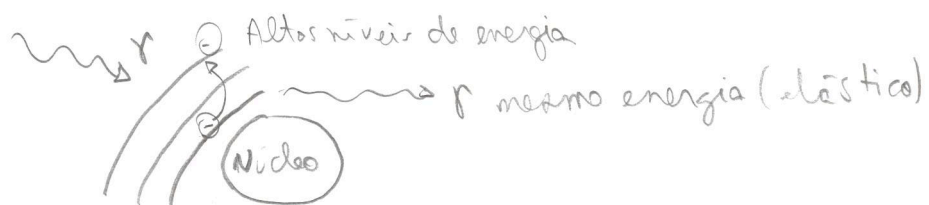 γ
- Altos níveis de energia
γ mesmo energia (elástico)
-
Núcleo